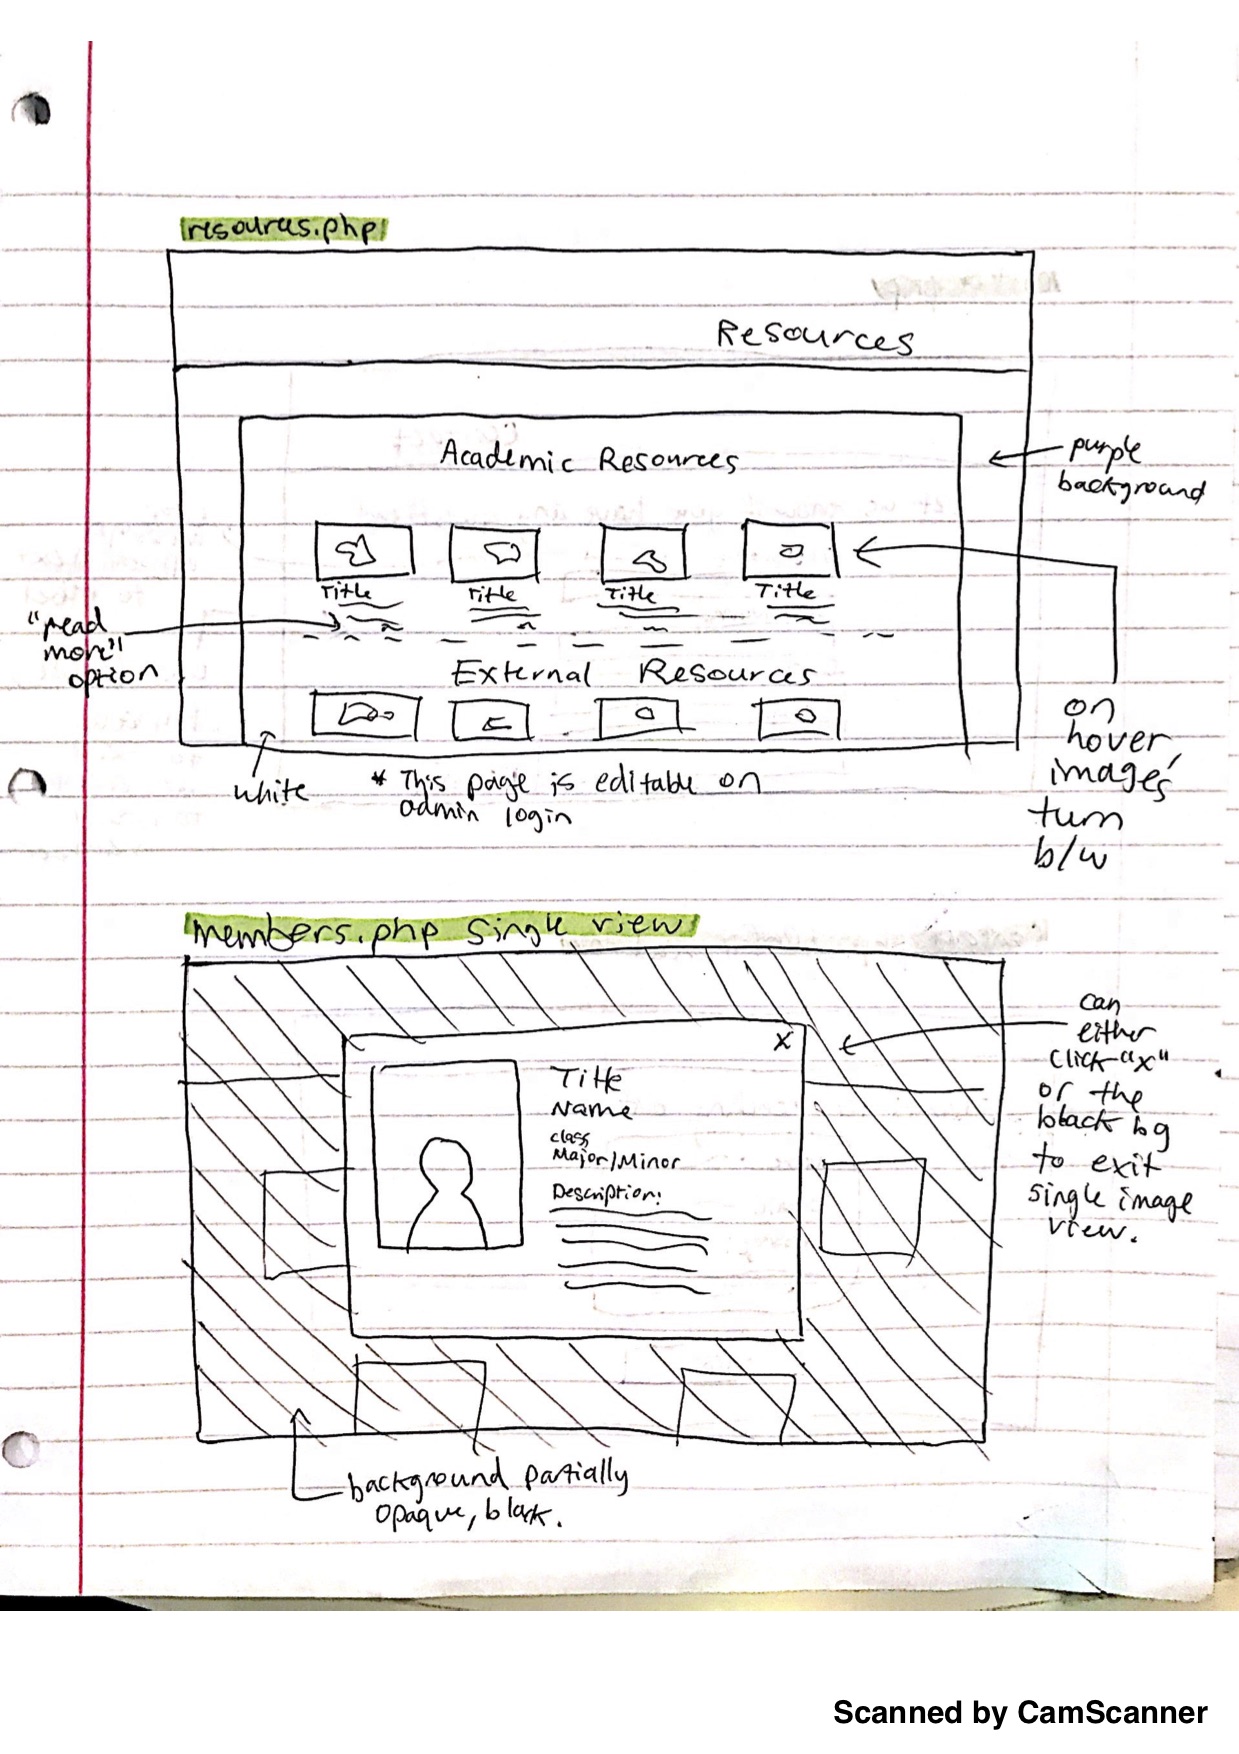 resources.php
Resources
Academic Resources
purple
background
Title Title Title Title
"read
more"
option
External Resources
on
hover,
images
turn
b/w
white
* This page is editable on
admin login
members.php single view
x
Title
Name
class
Major/Minor
Description:
can
either
click "x"
or the
black bg
to exit
single image
view.
background partially
opaque, black.
Scanned by CamScanner